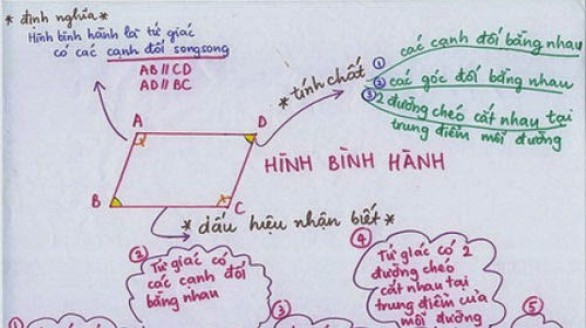 * định nghĩa *
Hình bình hành là tứ giác
có các cạnh đối song song
AB // CD
AD // BC
* tính chất
① các cạnh đối bằng nhau
② các góc đối bằng nhau
③ 2 đường chéo cắt nhau tại
trung điểm mỗi đường
A
D
B
C
HÌNH BÌNH HÀNH
* dấu hiệu nhận biết *
②
Tứ giác có
các cạnh đối
bằng nhau
④
Tứ giác có 2
đường chéo
cắt nhau tại
trung điểm của
mỗi đường
①
③
⑤